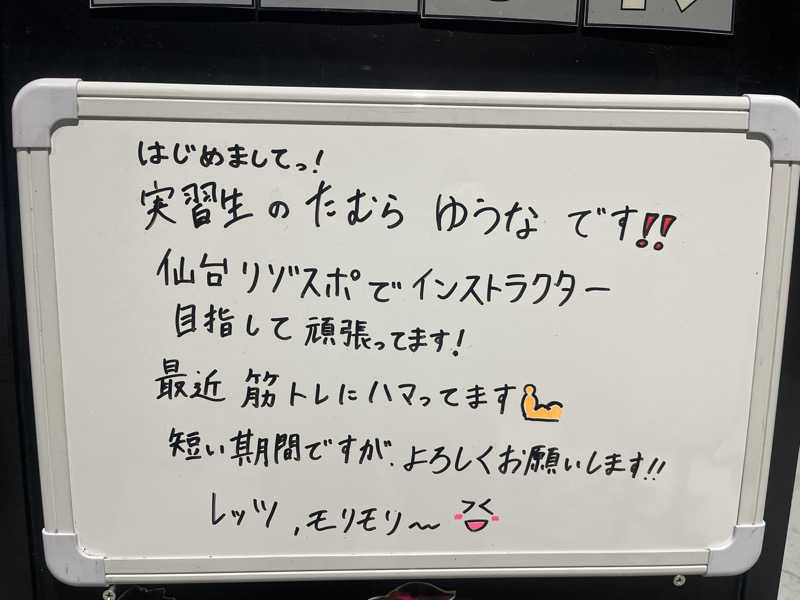 はじめましてっ!
実習生の たむら ゆうな です!!
仙台リゾスポでインストラクター
目指して 頑張ってます!
最近 筋トレにハマってます
短い期間ですが、よろしくお願いします!!
レッツ、モリモリ〜